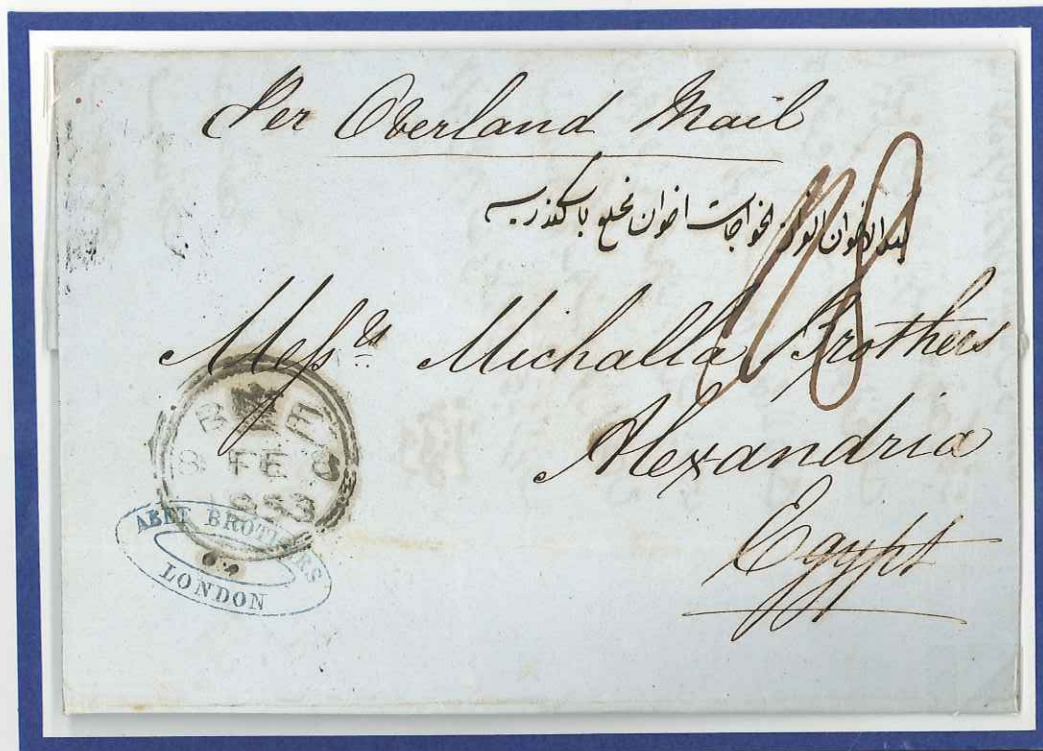 Per Overland Mail
الخواجات اخوان مخلع باسكندريه
Messrs Michalla Brothers
Alexandria
Egypt
8 FE 8
1853
ABET BROTHERS
LONDON